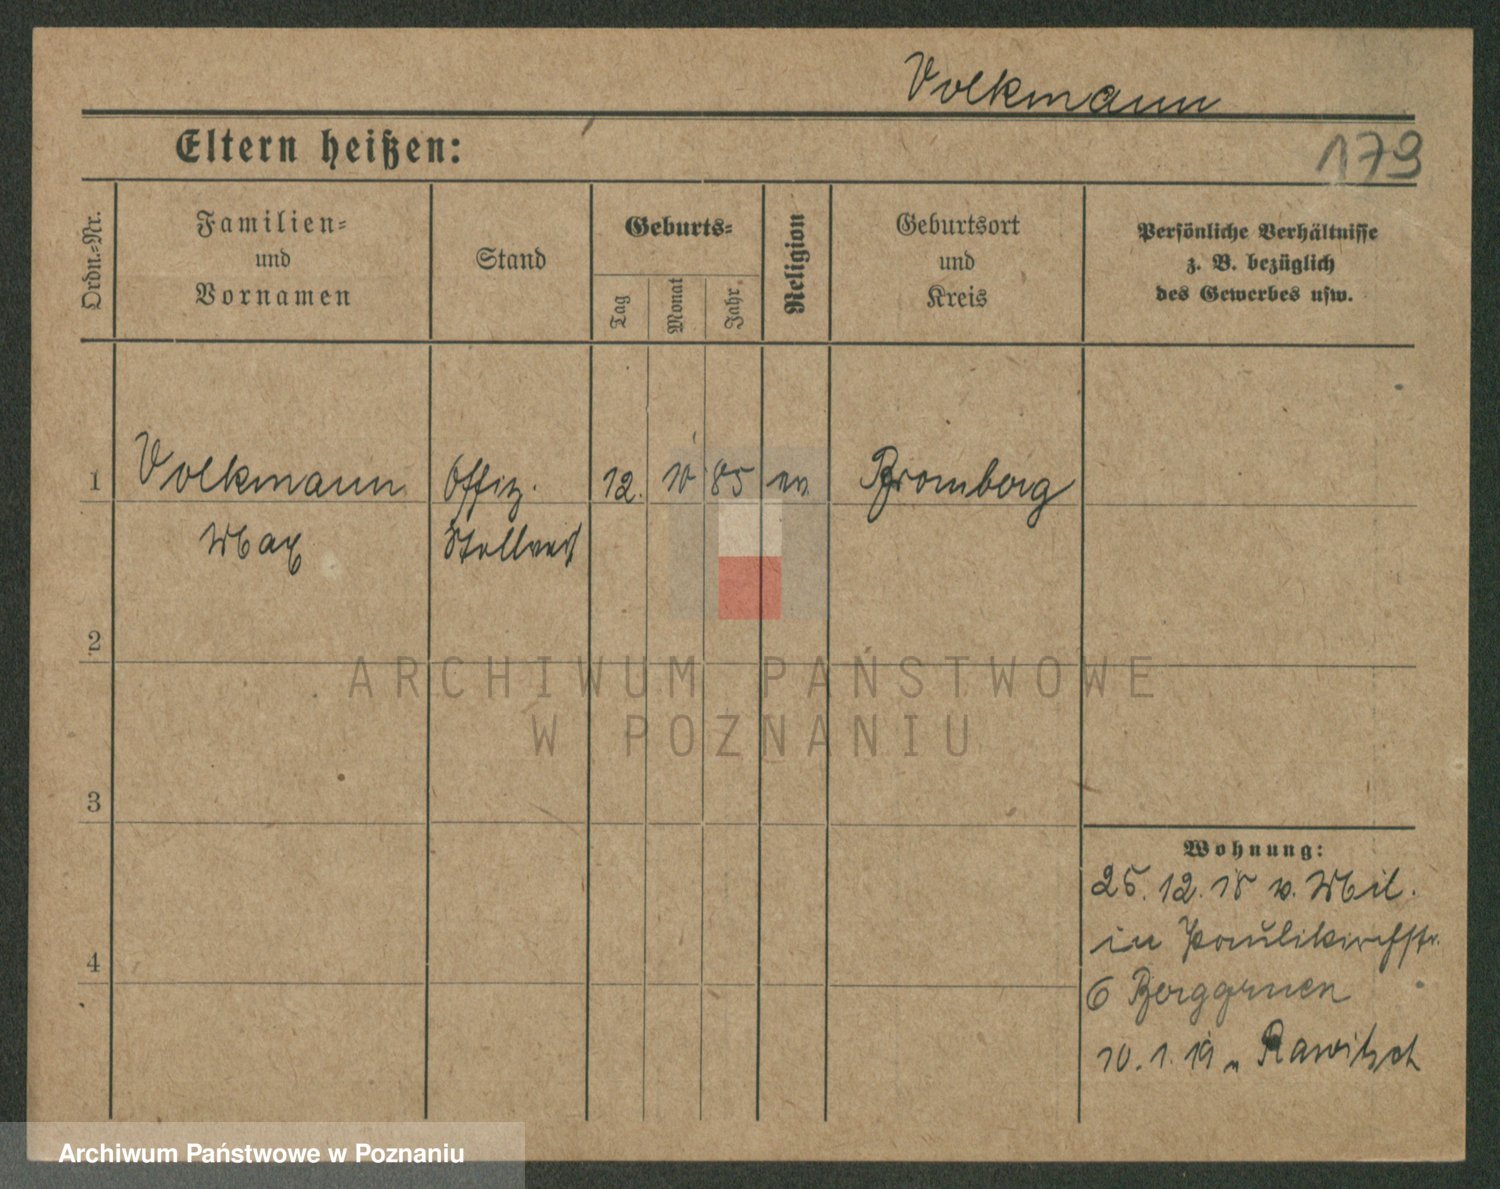 Volkmann
179
Eltern heißen:
Ordn.-Nr.
Familien-
und
Vornamen
Stand
Geburts-
Tag
Monat
Jahr
Religion
Geburtsort
und
Kreis
Persönliche Verhältnisse
z. B. bezüglich
des Gewerbes usw.
1
Volkmann
Offiz.
12.
10
85
ev.
Bromberg
Max
Stellvert
2
3
4
Wohnung:
25. 12. 18 v. Mil.
in Paulikirchstr.
6 Berggruen
10. 1. 19 „ Rawitsch
ARCHIWUM PAŃSTWOWE
W POZNANIU
Archiwum Państwowe w Poznaniu